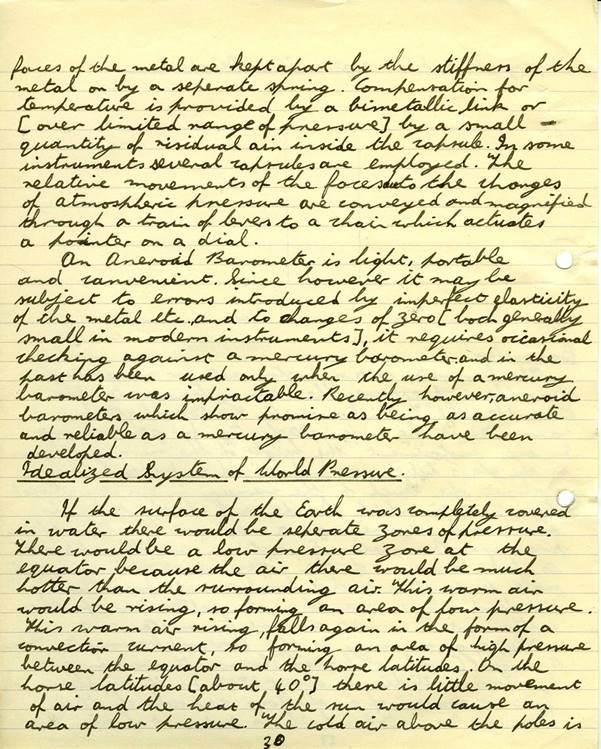 faces of the metal are kept apart by the stiffness of the
metal on by a seperate spring. Compensation for
temperature is provided by a bimetallic link or
[over limited range of pressure] by a small -
quantity of risidual air inside the capsule. In some
instruments several capsules are employed. The
relative movements of the faces to the changes
of atmospheric pressure are conveyed and magnified
through a train of levers to a chain which actuates
a pointer on a dial.
An Aneroid Barometer is light, portable
and convenient. Since however it may be
subject to errors introduced by imperfect elasticity
of the metal etc. and to changes of zero [both generally
small in modern instruments], it requires occasional
checking against a mercury barometer, and in the
past has been used only when the use of a mercury
barometer was impractable. Recently however, aneroid
barometers which show promise as being as accurate
and reliable as a mercury barometer have been
developed.
Idealized System of World Pressure.
If the surface of the Earth was completely covered
in water there would be seperate zones of pressure.
There would be a low pressure zone at the
equator because the air there would be much
hotter than the surrounding air. This warm air
would be rising, so forming an area of low pressure.
This warm air rising, falls again in the form of a
convection current, so forming an area of high pressure
between the equator and the horse latitudes. On the
horse latitudes [about 40°] there is little movement
of air and the heat of the sun would cause an
area of low pressure. The cold air above the poles is
30